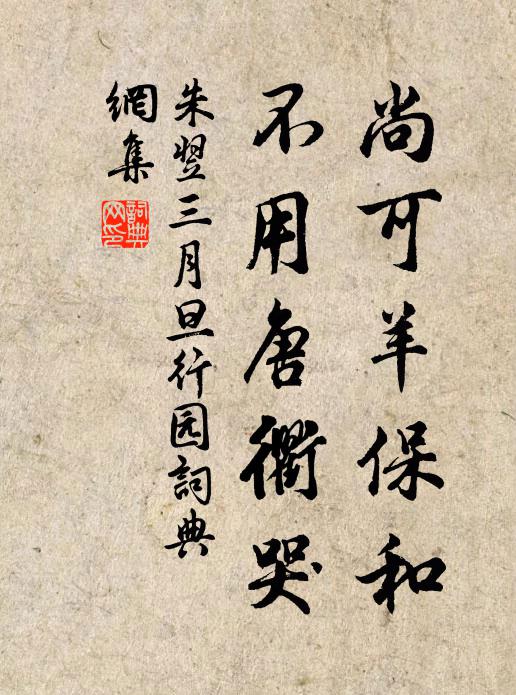 尚可羊保和
不用唐衢哭
朱翌三月旦行园詞典
網集
詞典
网印